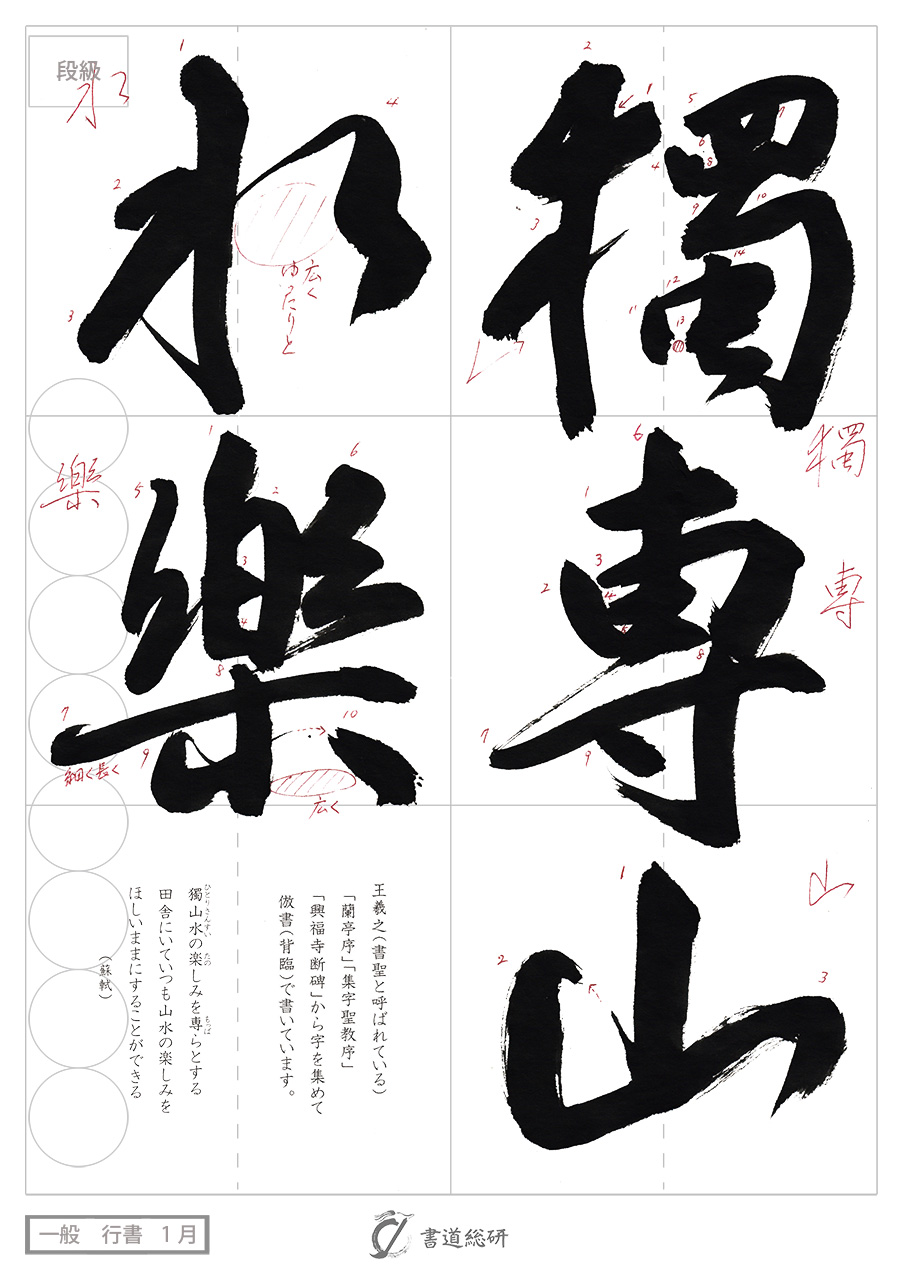 獨専山
水樂
段級
水
広く
ゆったりと
獨
専
山
樂
細く長く
広く
王羲之(書聖と呼ばれている)
「蘭亭序」「集字聖教序」
「興福寺断碑」から字を集めて
倣書(背臨)で書いています。
獨山水の楽しみを専らとする
ひとりさんすい たの もっぱ
田舎にいていつも山水の楽しみを
ほしいままにすることができる
(蘇軾)
一般 行書 1月
書道総研